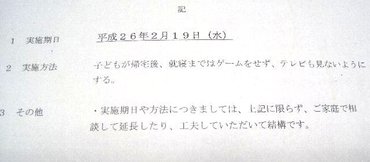 記
1 実施期日 平成26年2月19日(水)
2 実施方法 子どもが帰宅後、就寝まではゲームをせず、テレビも見ないように
する。
3 その他 ・実施期日や方法につきましては、上記に限らず、ご家庭で相
談して延長したり、工夫していただいて結構です。